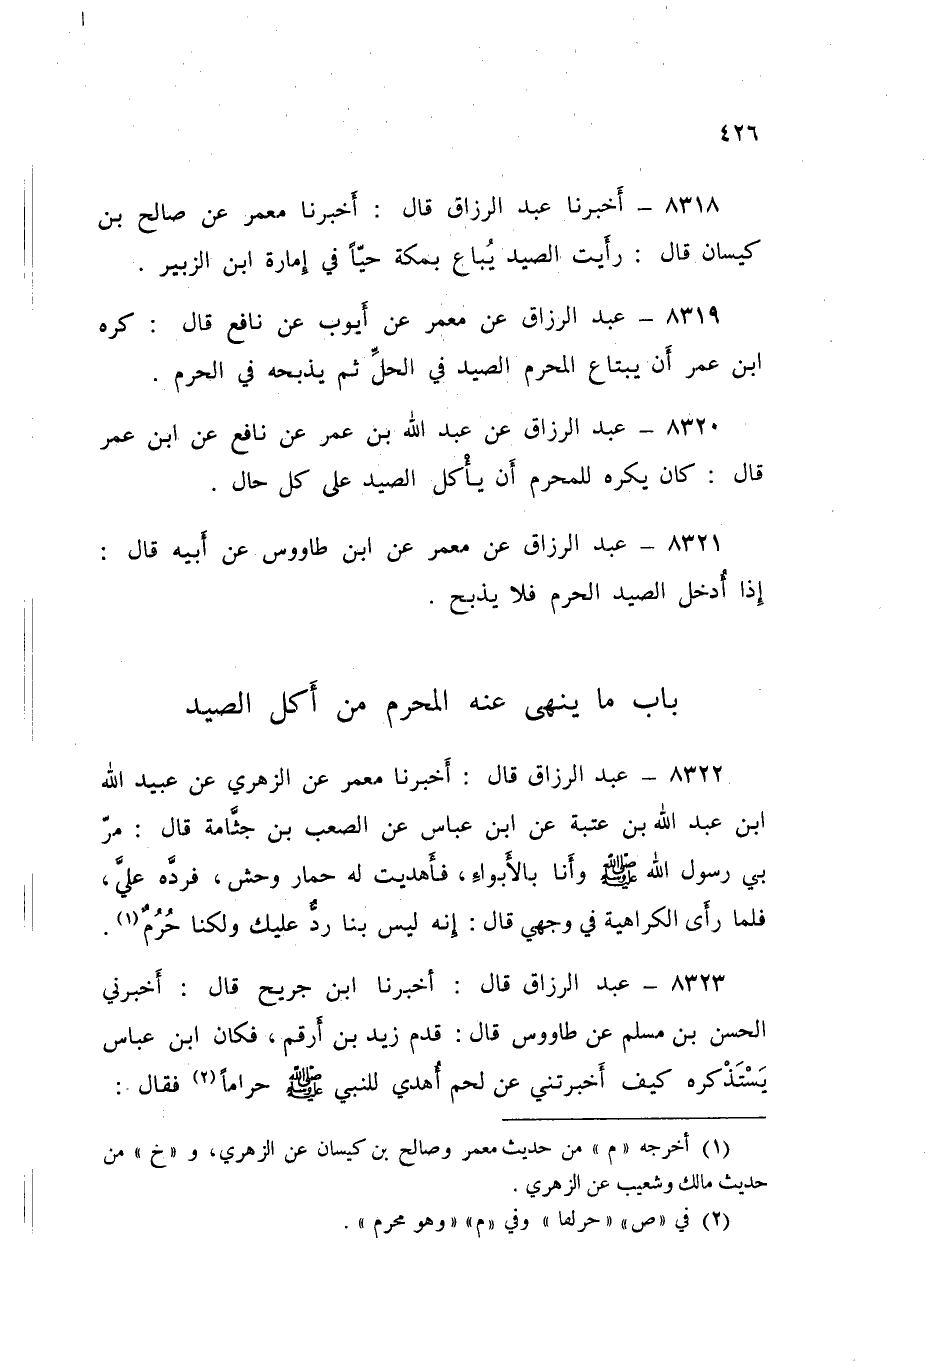 ٤٢٦
٨٣١٨ – أخبرنا عبد الرزاق قال : أخبرنا معمر عن صالح بن
كيسان قال : رأيت الصيد يُباع بمكة حيّاً في إمارة ابن الزبير .
٨٣١٩ – عبد الرزاق عن معمر عن أيوب عن نافع قال : كره
ابن عمر أن يبتاع المحرم الصيد في الحلِّ ثم يذبحه في الحرم .
٨٣٢٠ – عبد الرزاق عن عبد الله بن عمر عن نافع عن ابن عمر
قال : كان يكره للمحرم أن يأكل الصيد على كل حال .
٨٣٢١ – عبد الرزاق عن معمر عن ابن طاووس عن أبيه قال :
إذا أُدخل الصيد الحرم فلا يذبح .
باب ما ينهى عنه المحرم من أكل الصيد
٨٣٢٢ – عبد الرزاق قال : أخبرنا معمر عن الزهري عن عبيد الله
ابن عبد الله بن عتبة عن ابن عباس عن الصعب بن جثَّامة قال : مرّ
بي رسول الله ﷺ وأنا بالأَبواء، فأهديت له حمار وحش، فردَّه عليَّ،
فلما رأى الكراهية في وجهي قال : إنه ليس بنا ردٌّ عليك ولكنا حُرُمٌ(١) .
٨٣٢٣ – عبد الرزاق قال : أخبرنا ابن جريح قال : أخبرني
الحسن بن مسلم عن طاووس قال : قدم زيد بن أرقم، فكان ابن عباس
يَسْتَذْكره كيف أخبرتني عن لحم أُهدي للنبي ﷺ حراماً(٢) فقال :
(١) أخرجه «م» من حديث معمر وصالح بن كيسان عن الزهري، و «خ» من
حديث مالك وشعيب عن الزهري .
(٢) في «ص» «حرلفا» وفي «م» «وهو محرم» .